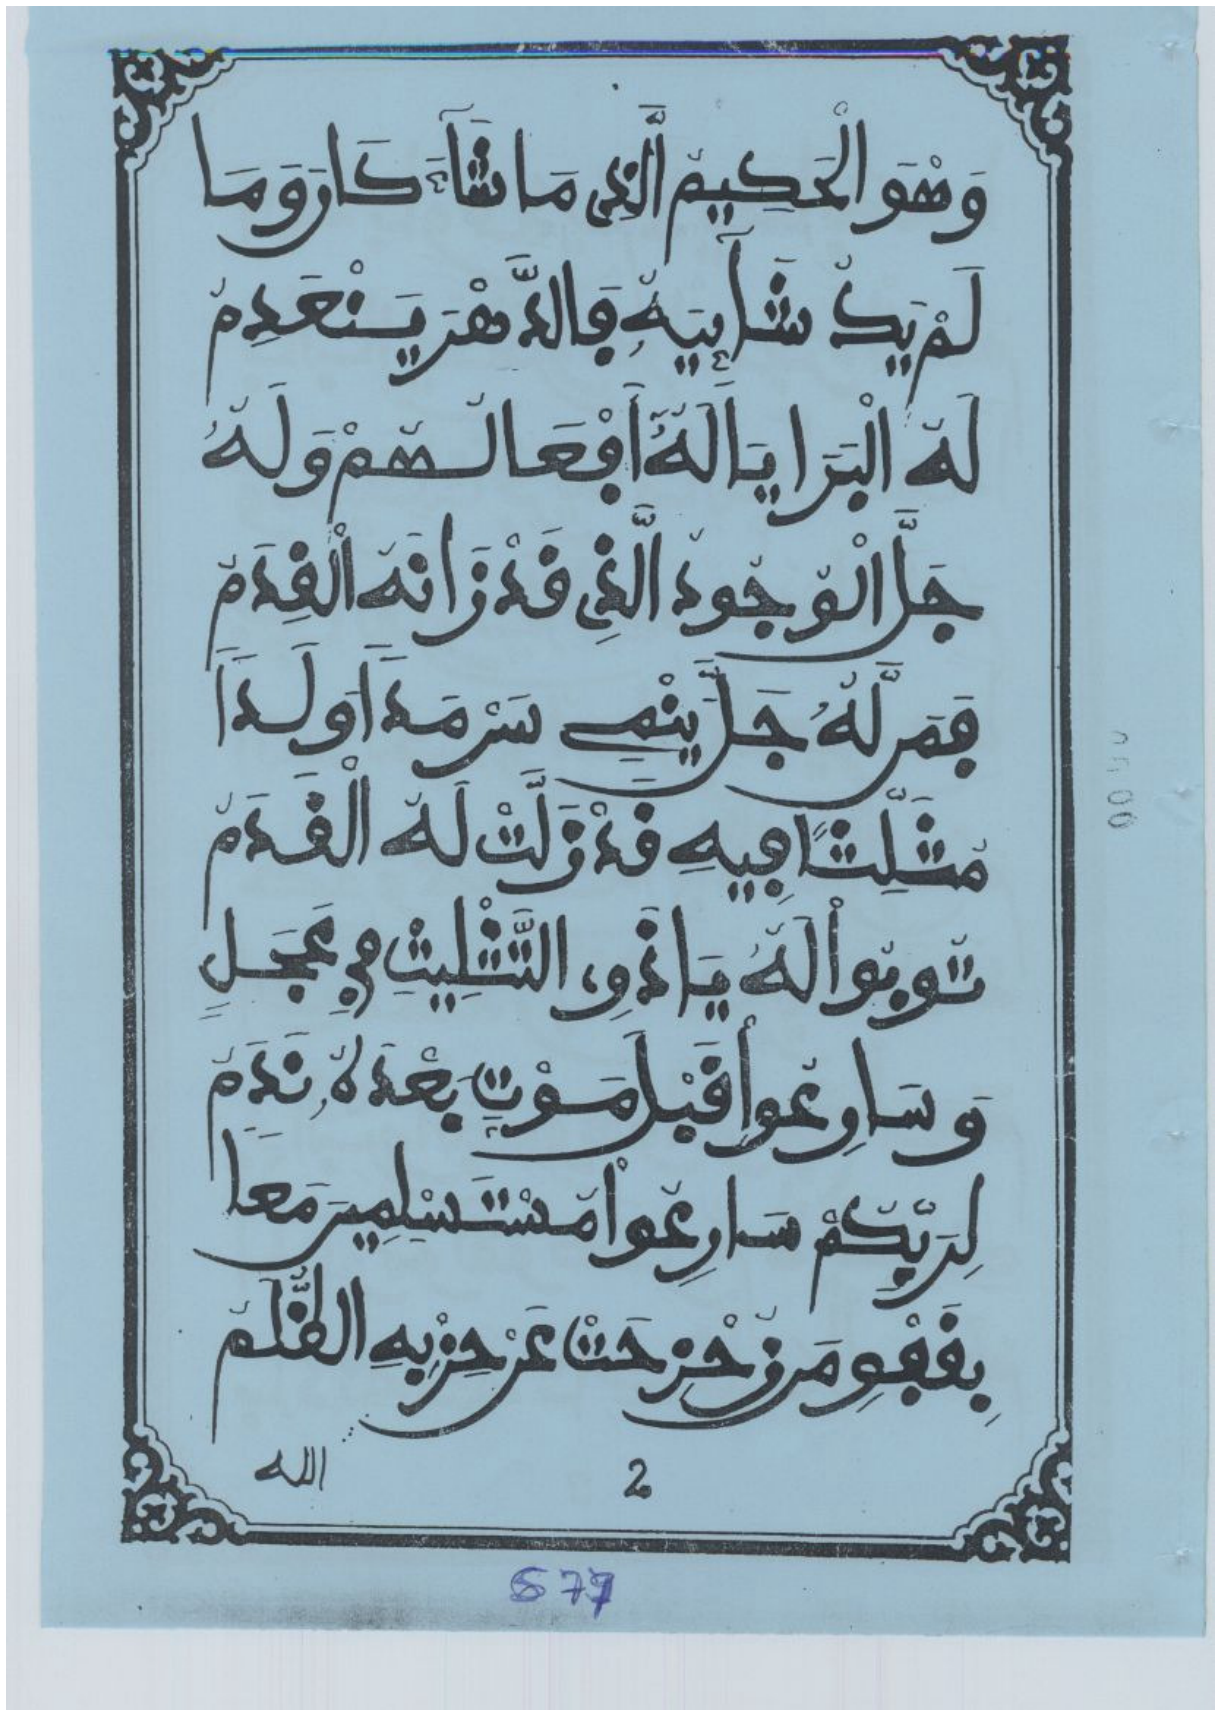 وَهْوَ الْحَكِيمُ الَّذِي مَا شَآءَ كَانَ وَمَا
لَمْ يَكُ شَآئِيهُ فِي الدَّهْرِ يَنْعَدِمُ
لَهُ الْبَرَايَا لَهُ أَفْعَالُهُمْ وَلَهُ
جَلَّ الْوُجُودُ الَّذِي قَدْ زَانَهُ الْقِدَمُ
فَمَن لَّهُ جَلَّ يَنْمِي سَرْمَدًا وَلَدَا
مُثَلِّثًا فِيهِ قَدْ زَلَّتْ لَهُ الْقَدَمُ
تُوبُواْ لَهُ يَا ذَوِي التَّثْلِيثِ فِي عَجَلٍ
وَسَارِعُواْ قَبْلَ مَوْتٍ بَعْدَهُ نَدَمُ
لِرَبِّكُمْ سَارِعُواْ مُسْتَسْلِمِينَ مَعَا
بِقَفْوِ مَن زُحْزِحَتْ عَنْ حِزْبِهِ الظُّلَمُ
2
الله
577